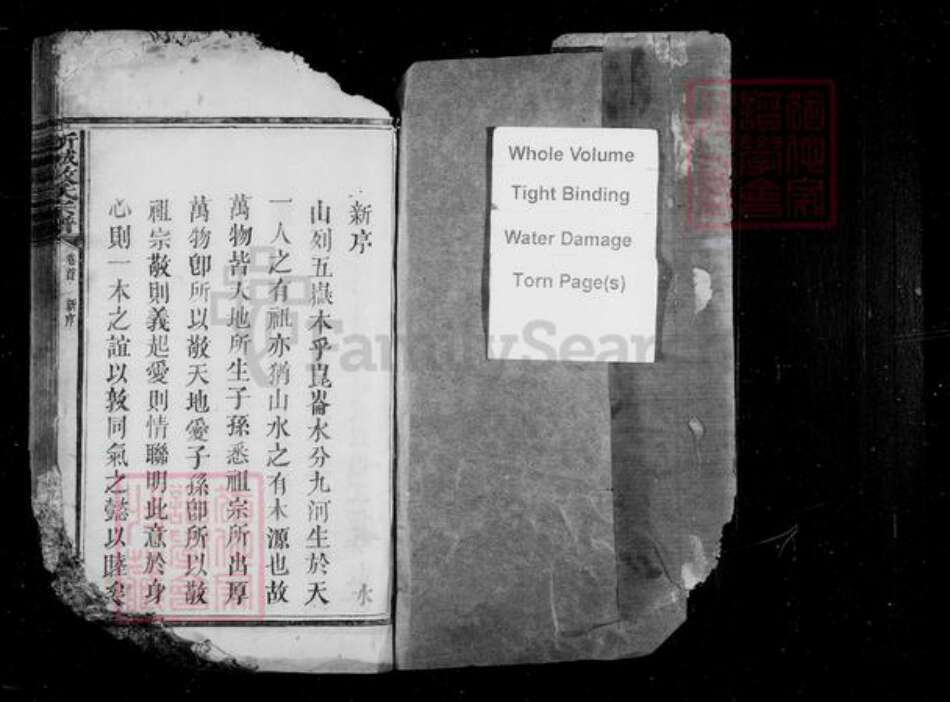 Whole Volume
Tight Binding
Water Damage
Torn Page(s)
FamilySearch
新序
山列五嶽木乎崑崙水分九河生於天
一人之有祖亦猶山水之有木源也故
萬物皆天地所生子孫悉祖宗所出厚
萬物卽所以敬天地愛子孫卽所以敬
祖宗敬則義起愛則情聯明此意於身
心則一本之誼以敦同氣之懿以睦矣
卷首 新序